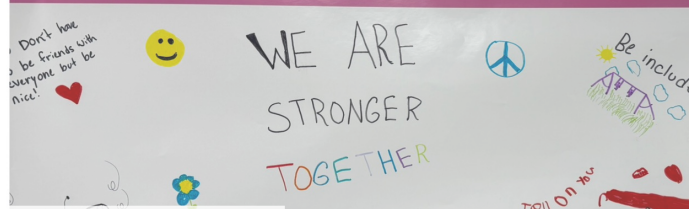 Don't have
be friends with
everyone but be
nice!
WE ARE
STRONGER
TOGETHER
Be include
on You